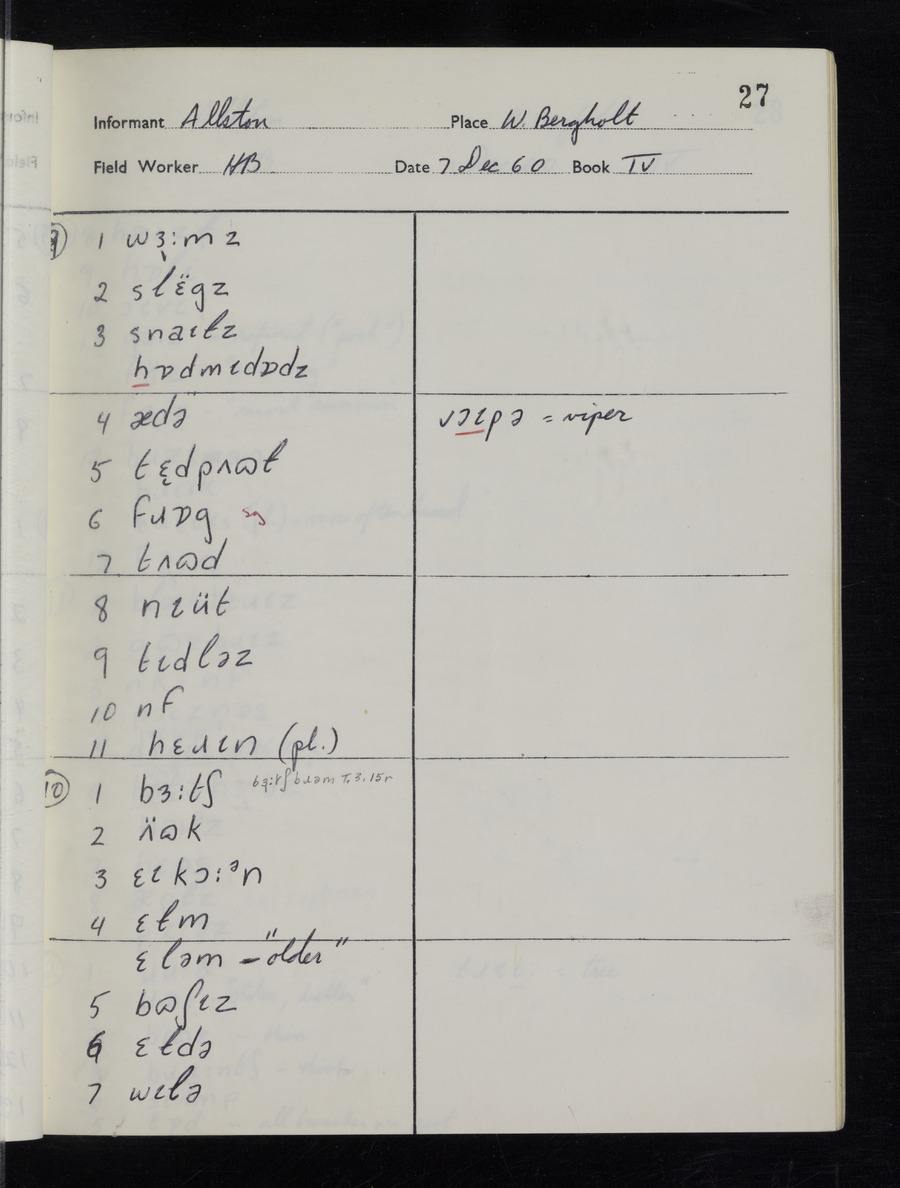 27
Informant Allston Place W. Bergholt
Field Worker HB Date 7 Dec 60 Book IV
9) 1 wɜ̣:mz
2 slëgz
3 snaɩɫz
hɒdmɩdɒdz
4 ædə vəɩpə = viper
5 tɛ̨dpʌɷɫ
6 fɹɒg sg
7 tʌɷd
8 nɩüt
9 tɩdləz
10 nf
11 hɛɹɩn (pl.)
10) 1 bɜ:tʃ bɜ:tʃbɹəm T.3.15r
2 ʌ̈ɷk
3 ɛɩkɔ:ᵊn
4 ɛɫm
ɛləm – "older"
5 bɷʃɩz
6 ɛɫdə
7 wɩlə